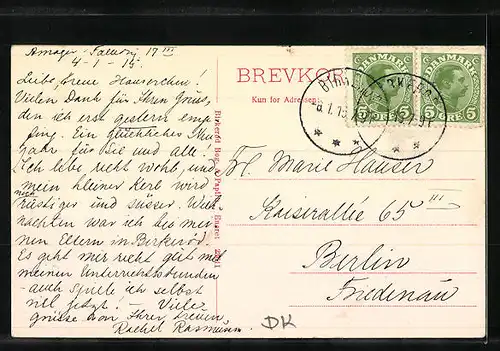 Amager - 17 III
4-1-15.
Liebe, treue Hauserchen!
Vielen Dank für Ihren Gruss,
den ich erst gestern emp-
fing. Ein glückliches Neu-
jahr für Sie und alle!
Ich lebe recht wohl, und
mein kleiner Kerb wird
rüstiger und süsser. Weih-
nachten war ich bei mei-
nen Eltern in Birkeröd.
Es geht mir recht gut mit
meinen Unterrichtsstunden
- auch spiele ich selbst
viel jetzt! - Viele
grüsse von Ihrer treuen
Rachel Rasmussen
BREVKORT
Kun for Adressen
DANMARK
5 ØRE 5
DANMARK
5 ØRE 5
Birkerød Bog- & Papirhandel, Eneret
Frl. Marie Hauser
Kaiserallée 65 III
Berlin
Friedenau
DK